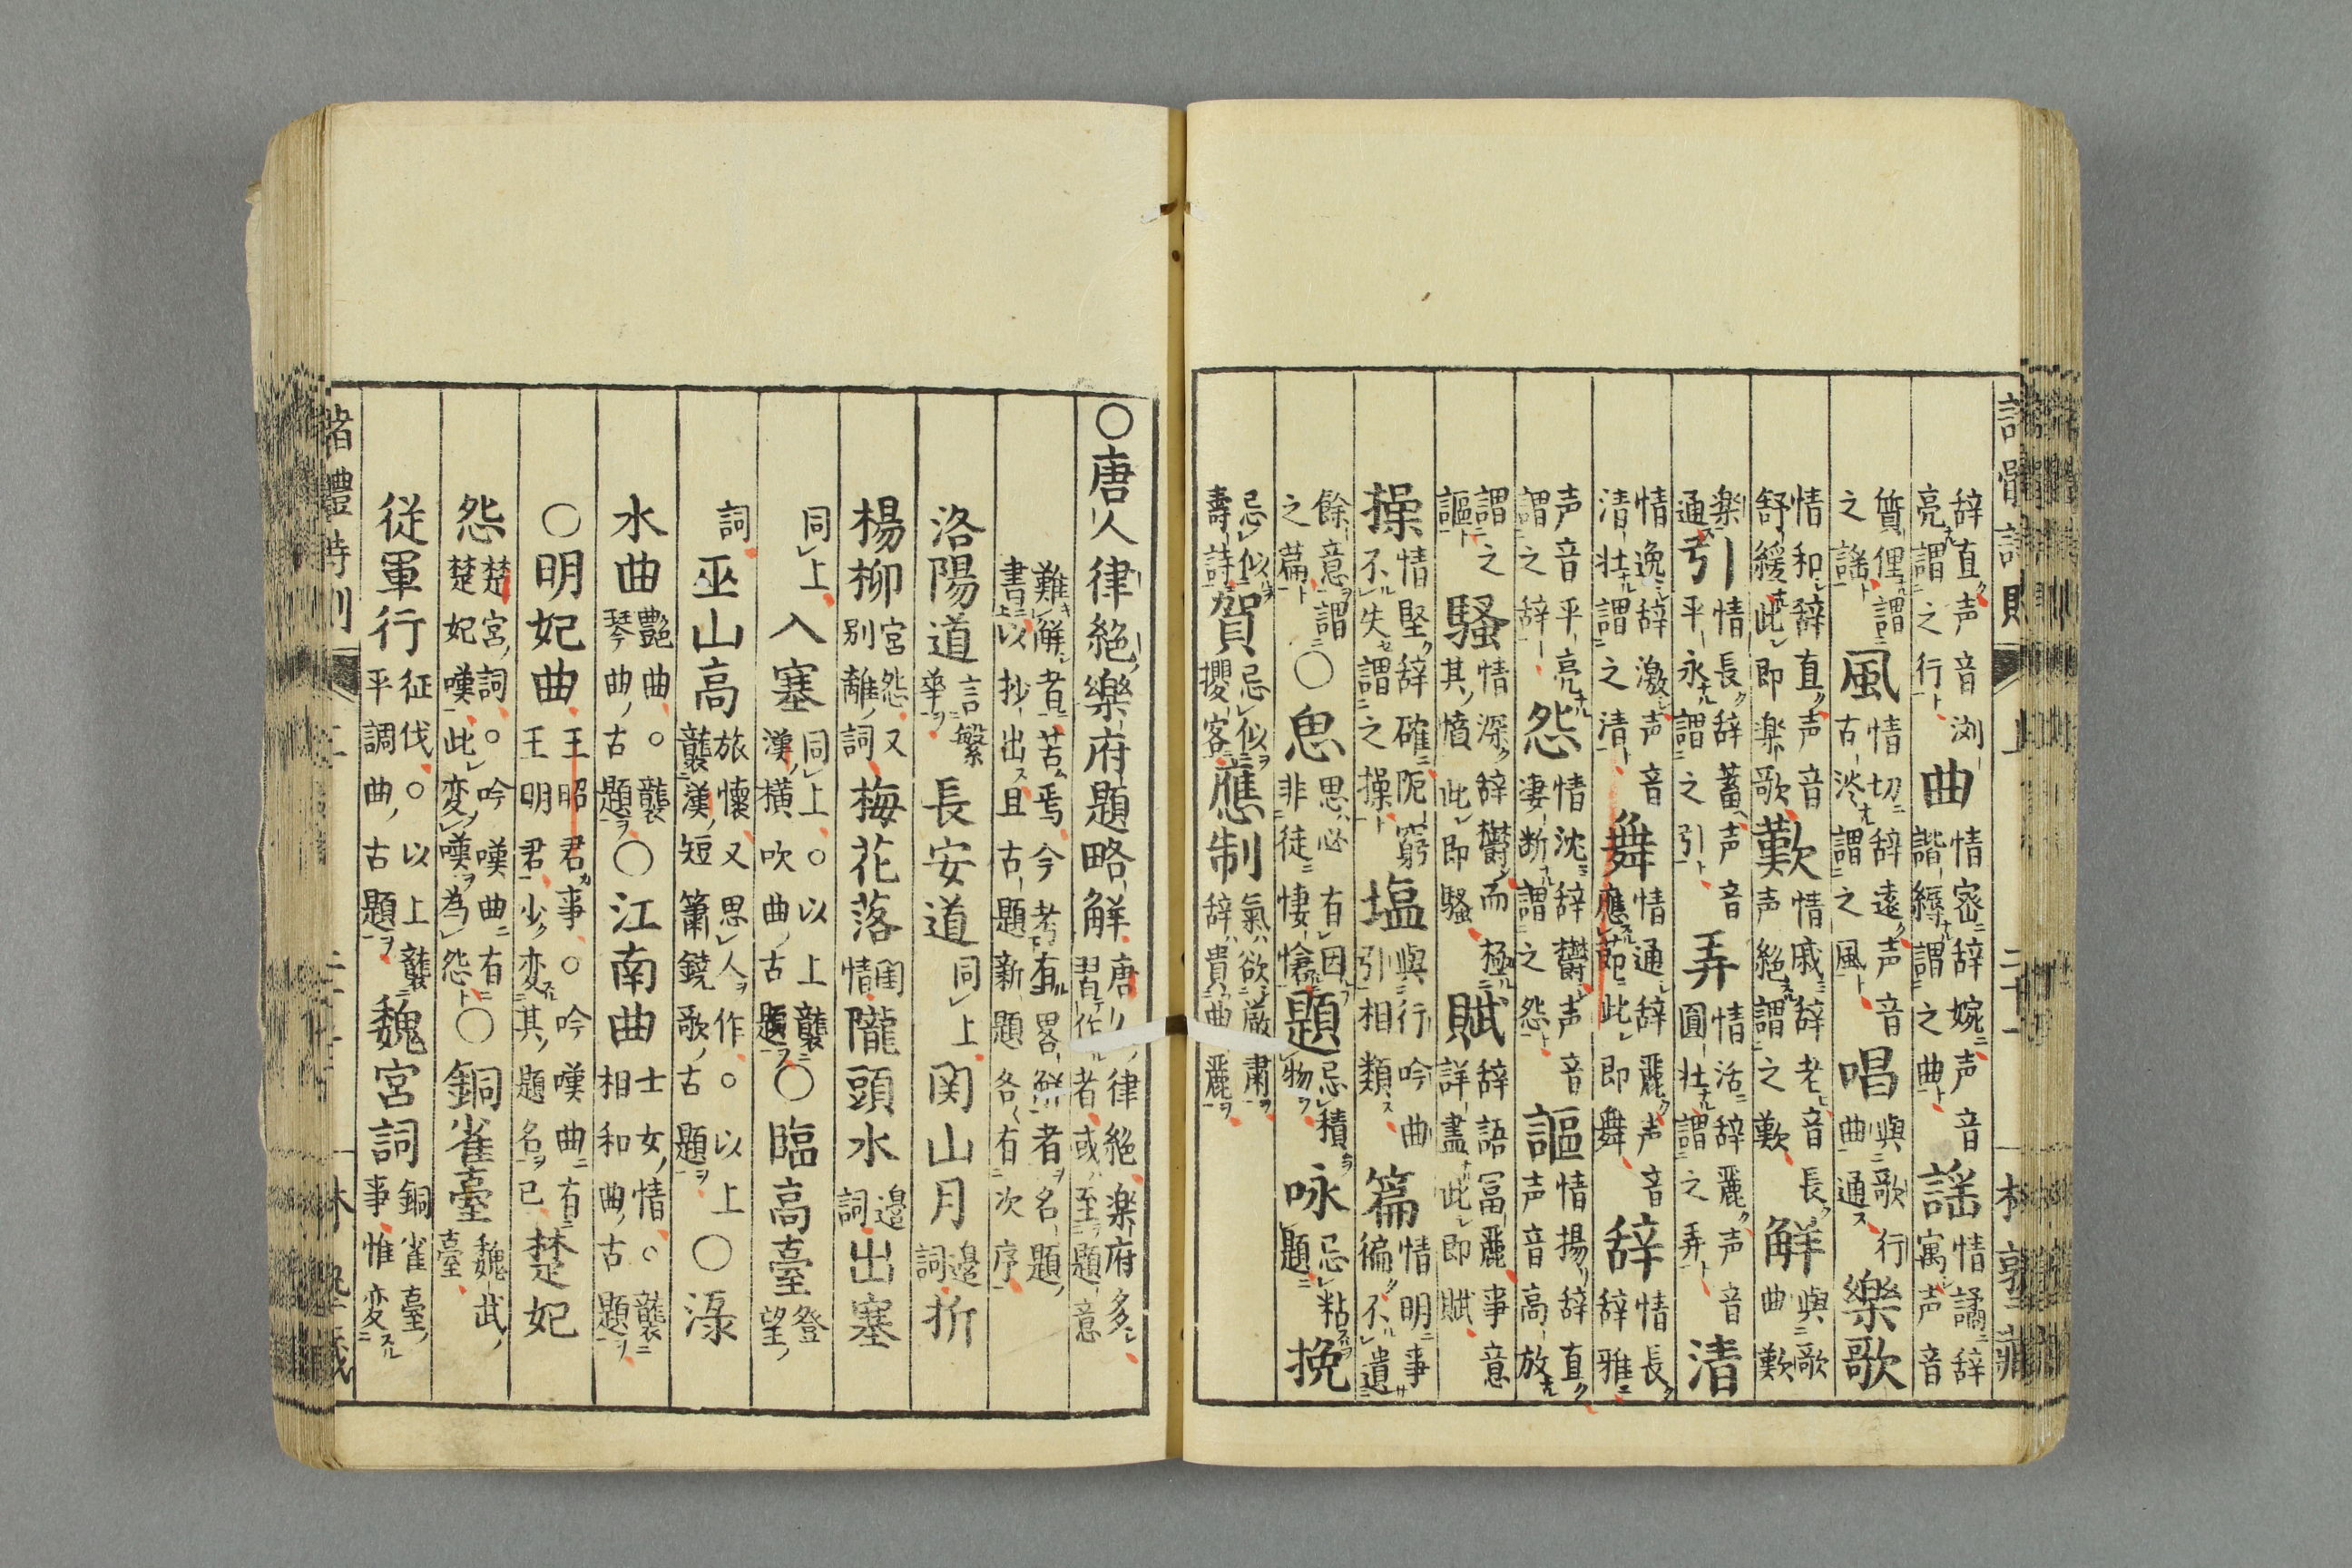 辞直声音浏亮謂之行曲情宻辞婉声音諧縟謂之曲謡情譎辞寓声音
質俚謂之謡風情切辞遠声音古淡謂之風唱與歌行曲通樂歌
情和辞直声音舒緩此即楽歌歎情戚辞老音長声絶謂之歎解與歌曲歎
楽通引情長辞蓄声音平永謂之引弄情活辞麗声音圓壮謂之弄清
情逸辞激声音清壮謂之清舞情通辞麗声音應節此即舞辞情長辞雅
声音平亮謂之辞怨情沈辞鬱声音凄断謂之怨謳情揚辞直声音高放
謂之謳騒情深辞鬱而極其憤此即騒賦辞語冨麗事意詳盡此即賦
操情堅辞確阨窮不失謂之操塩與行吟曲引相類篇情明事徧不遺
餘意謂之篇○思思必有因非徒悽愴題忌積物咏忌粘題挽
忌似壽詩賀忌似攖客應制氣欲厳肅辞貴曲麗
○唐人律絶樂府題略解唐人律絶楽府多習作者或至題意
難解者苦焉今考有畧解者名題書以抄出且古題新題各有次序
洛陽道言繁華長安道同上関山月邉詞折
楊柳宮怨又別離詞梅花落閨情隴頭水邉詞出塞
同上入塞同上○以上襲漢横吹曲古題○臨高臺登望
詞巫山高旅懐又思人作○以上襲漢短簫鐃歌古題○渌
水曲艶曲○襲琴曲古題○江南曲士女情○襲相和曲古題
○明妃曲王昭君事○吟嘆曲有王明君少変其題名已楚妃
怨楚宮詞○吟嘆曲有楚妃嘆此変嘆為怨○銅雀臺魏武臺
従軍行征伐○以上襲平調曲古題魏宮詞銅雀臺事惟変